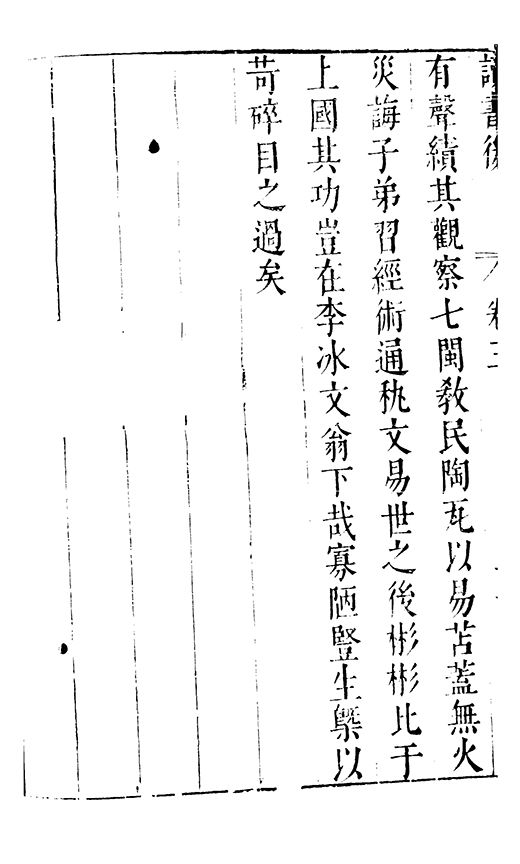 讀書後 卷三
有聲績其觀察七閩敎民陶瓦以易苫蓋無火
災誨子弟習經術通秇文易世之後彬彬比于
上國其功豈在李冰文翁下哉寡陋豎生槩以
苛碎目之過矣